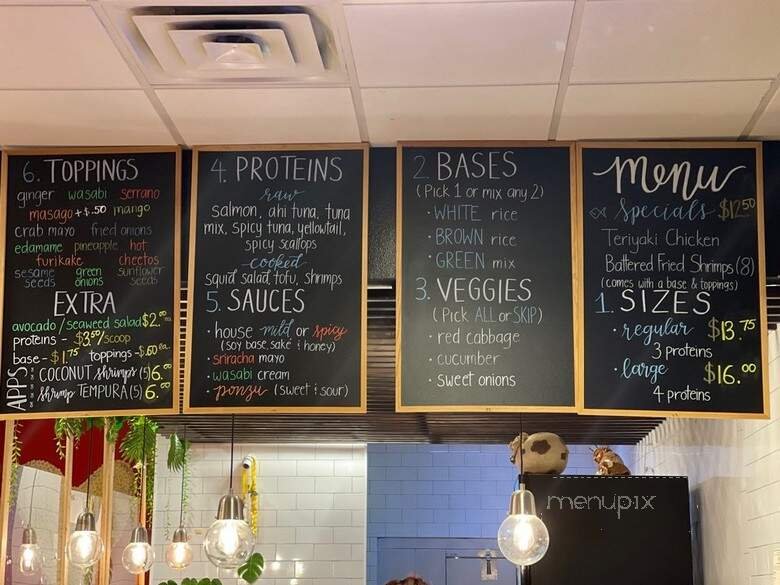 6. TOPPINGS
ginger wasabi serrano
masago +$.50 mango
crab mayo fried onions
edamame pineapple hot
furikake cheetos
sesame seeds green onions sunflower seeds
EXTRA
avocado / seaweed salad $2.00
proteins - $3.50/scoop
base - $1.75 toppings - $.60 ea.
APPS:
COCONUT shrimps (5) 6.00
shrimp TEMPURA (5) 6.00
4. PROTEINS
raw
salmon, ahi tuna, tuna
mix, spicy tuna, yellowtail,
spicy scallops
cooked
squid salad, tofu, shrimps
5. SAUCES
• house - mild or spicy
(soy base, sake & honey)
• sriracha mayo
• wasabi cream
• ponzu (sweet & sour)
2. BASES
(Pick 1 or mix any 2)
• WHITE rice
• BROWN rice
• GREEN mix
3. VEGGIES
(Pick ALL or SKIP)
• red cabbage
• cucumber
• sweet onions
menu
Specials $12.50
Teriyaki Chicken
Battered Fried Shrimps (8)
(comes with a base & toppings)
1. SIZES
• regular $13.75
3 proteins
• large $16.00
4 proteins
menupix